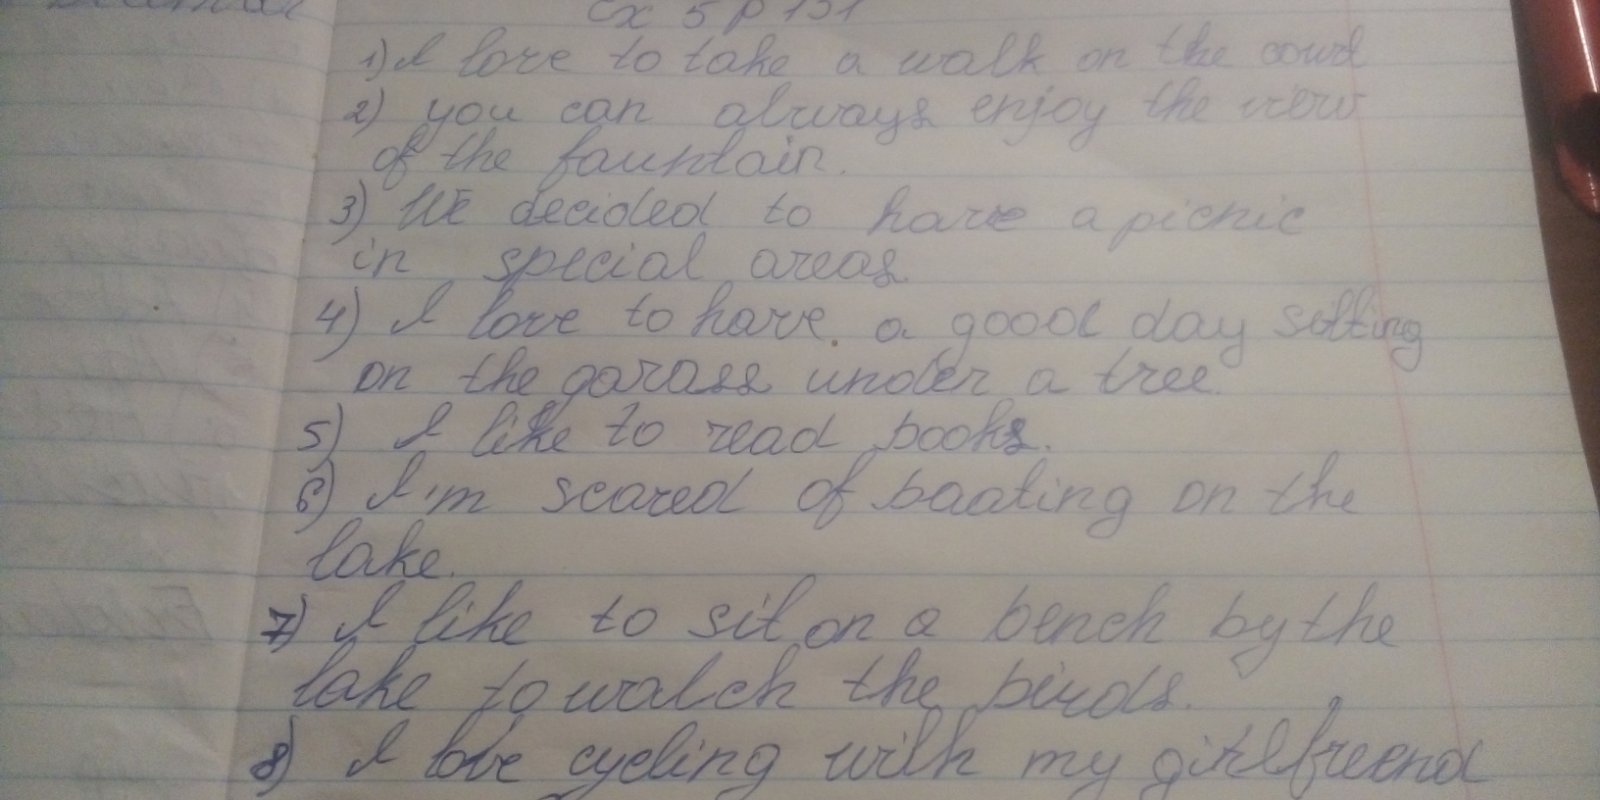 Ex 5 p 131
1) I love to take a walk on the courd
2) you can always enjoy the view
of the fauntain.
3) We decided to have a picnic
in special areas.
4) I love to have a goood day sitting
on the garass under a tree.
5) I like to read books.
6) I'm scared of baating on the
lake.
7) I like to sit on a bench by the
lake to watch the birds.
8) I love cycling with my girlfreend